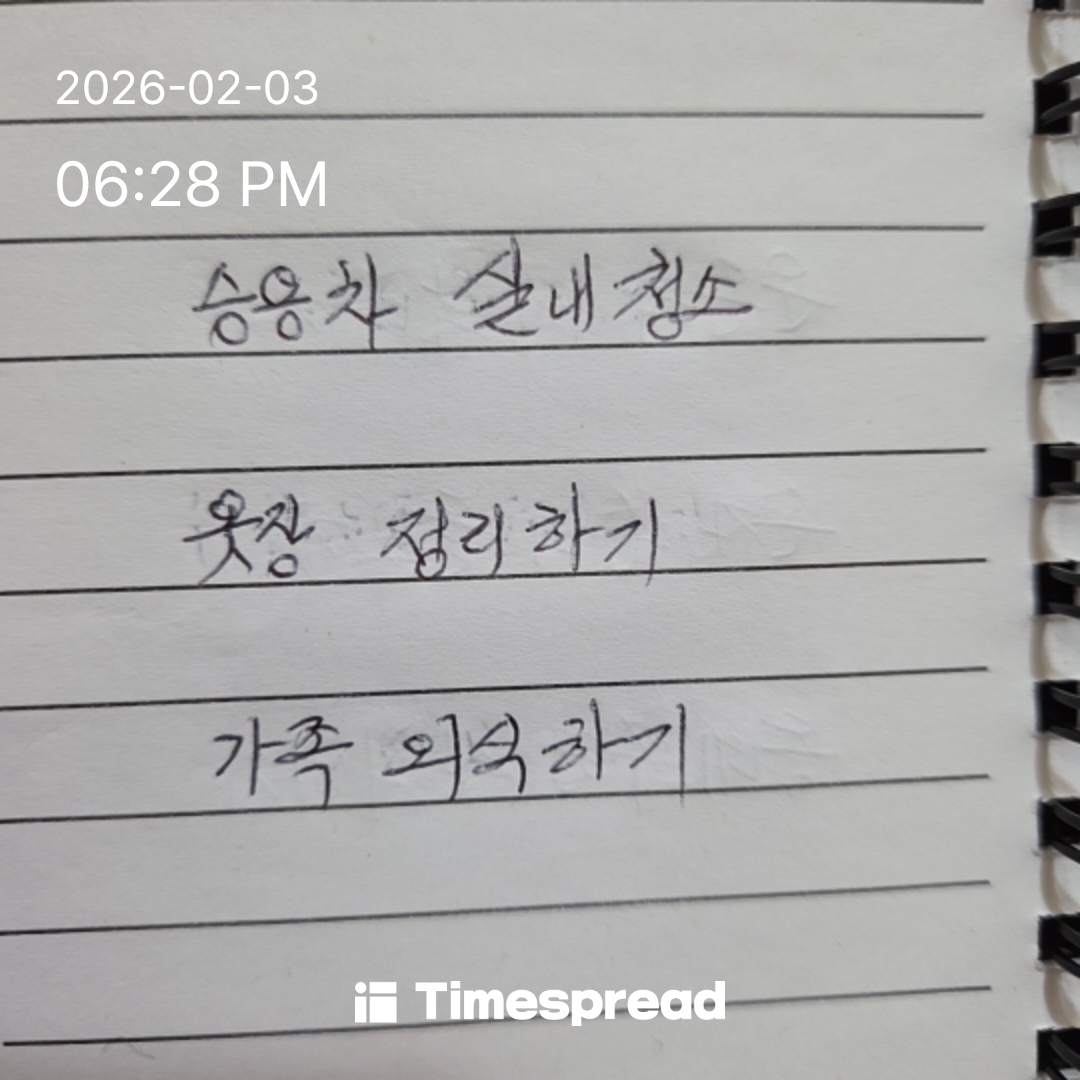 2026-02-03
06:28 PM
승용차 실내청소
옷장 정리하기
가족 외식하기
Timespread